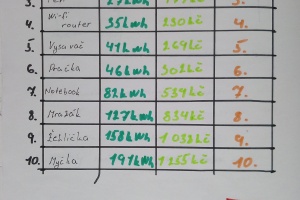 4. Wi-fi router 35kWh 230kč 4.
5. Vysavač 41kWh 269kč 5.
6. Pračka 46kWh 302kč 6.
7. Notebook 82kWh 539kč 7.
8. Mrazák 127kWh 834kč 8.
9. Žehlička 158kWh 1038kč 9.
10. Myčka 191kWh 1255kč 10.